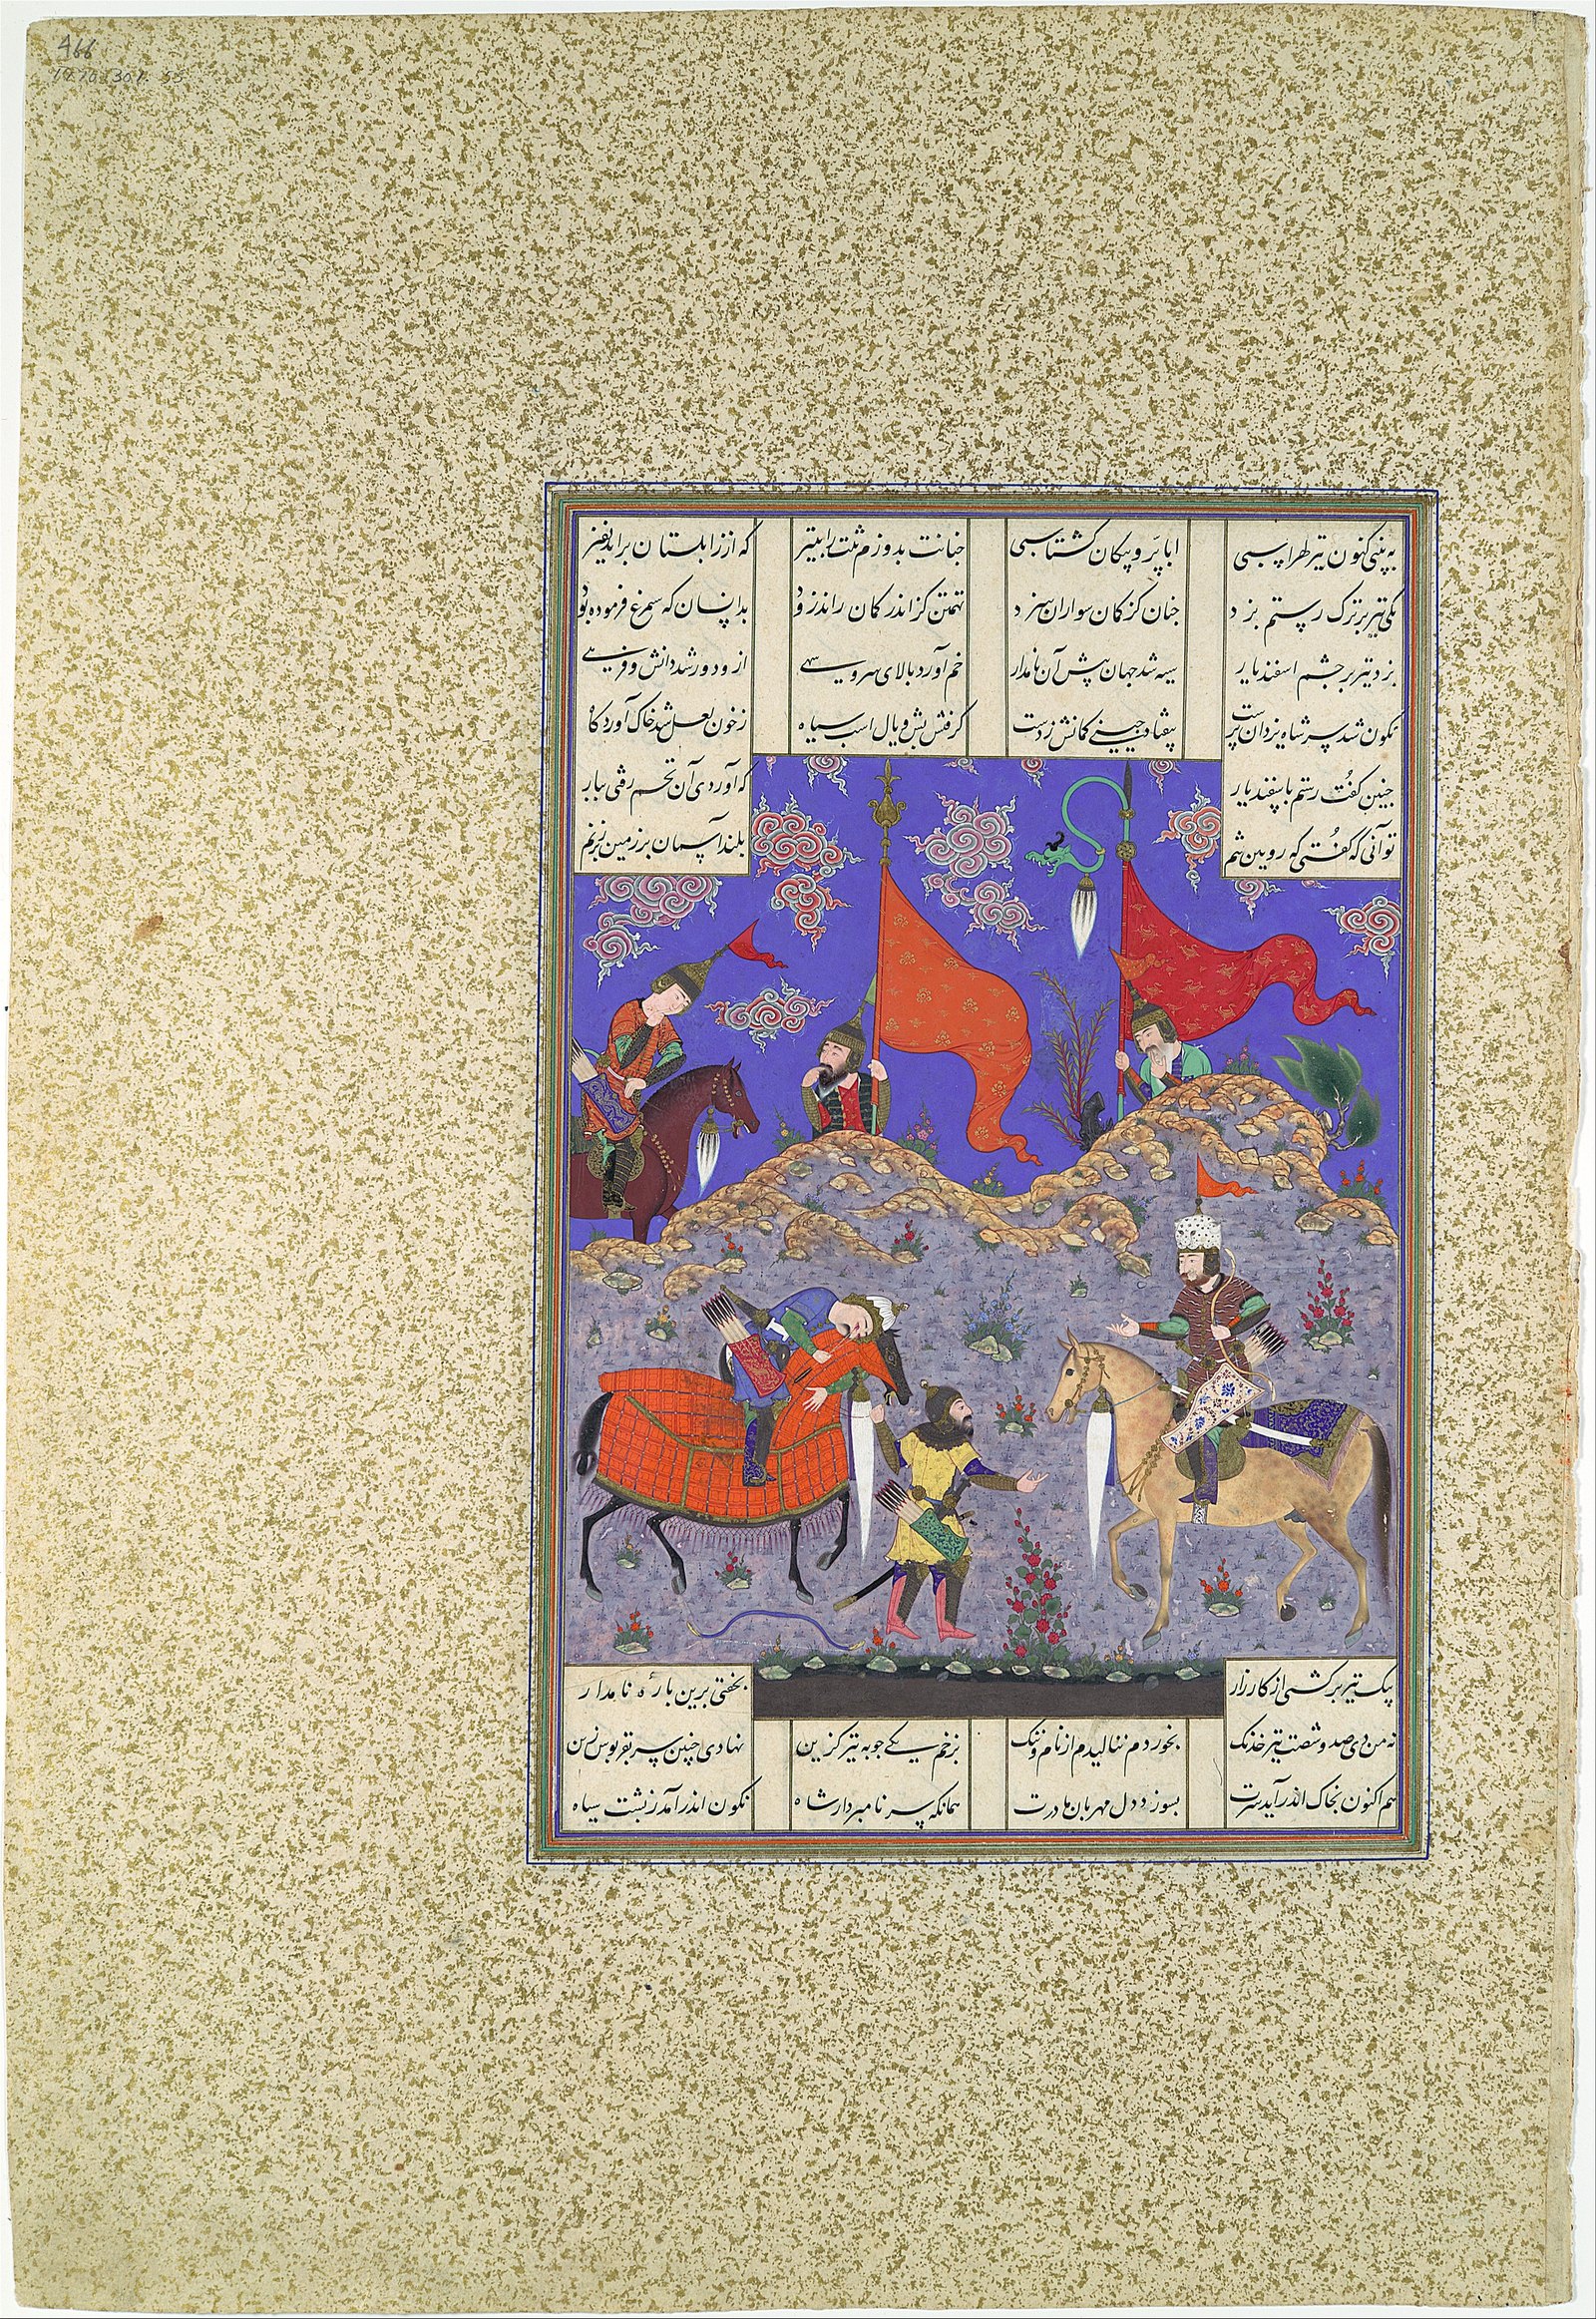 466
1970.301.55
به بینی کنون تیر لهراسپی ابا پر و پیکان گشتاسپی چنانت بدوزم را به تیر که از زابلستان برآید نفیر
یکی تیر بر ترک رستم بزد چنان کز کمان سواران سزد تهمتن گز اندر کمان راند زود بدانسان که سیمرغ فرموده بود
بزد تیر بر چشم اسفندیار سیه شد جهان پیش آن نامدار خم آورد بالای سرو سهی ازو دور شد دانش و فرهی
نگون شد سر شاه یزدان پرست بیفتاد چینی کمانش ز دست گرفتش بش و یال اسب سیاه ز خون لعل شد خاک آوردگاه
چنین گفت رستم باسفندیار که آوردی آن تخم رفتی ببار
تو آنی که گفتی که رویین تنم بلند آسمان بر زمین بر زنم
بیک تیر برگشتی از کارزار بخفتی برین بارهٔ نامدار
نه من دی صد و شصت تیر خدنگ بخوردم ننالیدم از نام و ننگ بزخم یکی چوبه تیر گزین نهادی چنین سر بقربوس زین
هم اکنون بخاک اندر آید سرت بسوزد دل مهربان مادرت همانگه سر نامبردار شاه نگون اندر آمد ز پشت سیاه